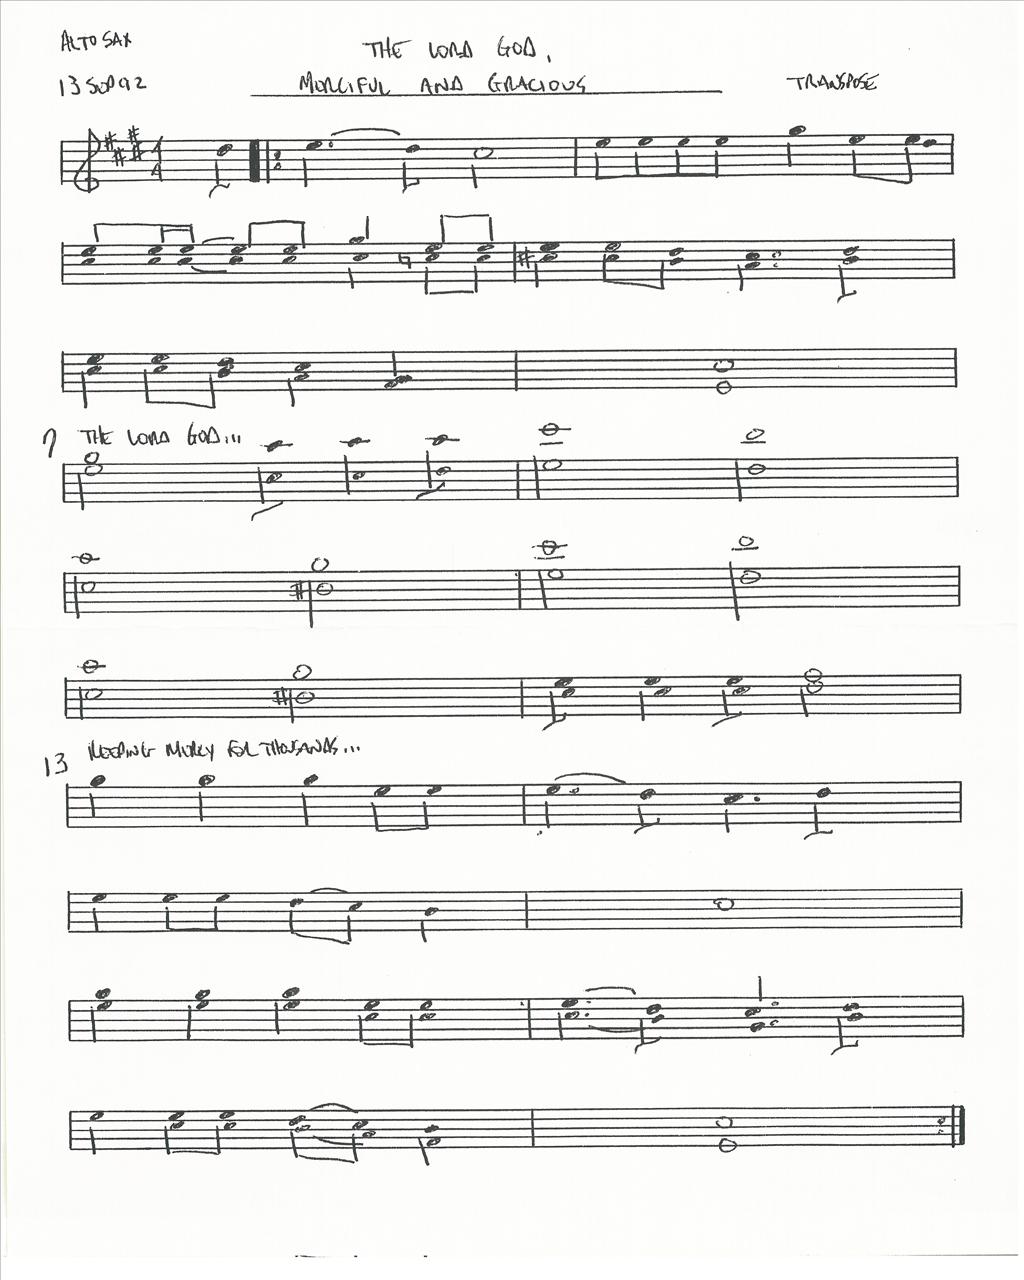 ALTO SAX
THE LORD GOD,
13 SEP 92
MERCIFUL AND GRACIOUS
TRANSPOSE
7 THE LORD GOD...
13 KEEPING MERCY FOR THOUSANDS...